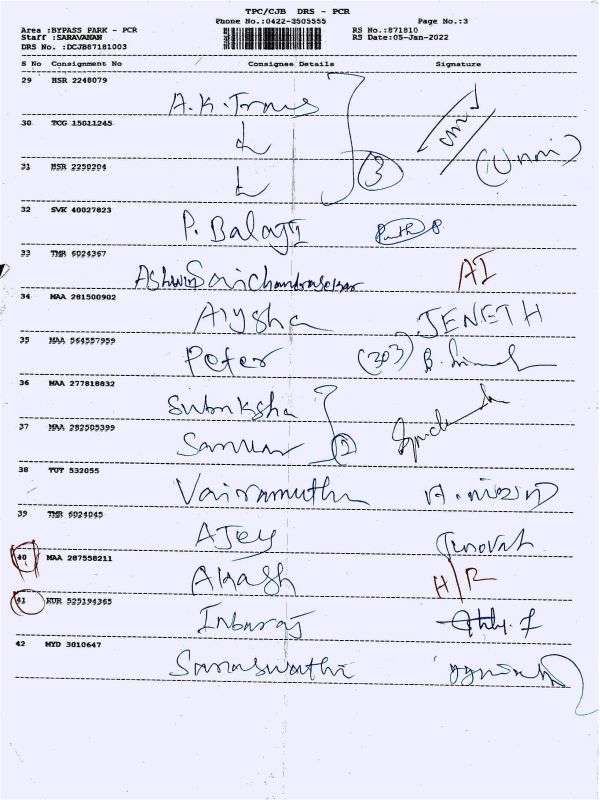 TPC/CJB DRS - PCR
Area :BYPASS PARK - PCR Phone No.:0422-3505555 Page No.:3
Staff :SARAVANAN RS No.:871810
DRS No. :DCJB87181003 RS Date:05-Jan-2022
S No Consignment No Consignee Details Signature
29 HSR 2248079
A.K.Trons
30 TCG 15011245
31 HSR 2250204
3 (Unni)
32 SVK 40027823
P. Balaji
33 TMR 6024367
Ashwin Sai Chandrasekar AI
34 MAA 281500902
Aiysha JENETH
35 MAA 564557959
Peter (303)
36 MAA 277818832
Subiksha
37 MAA 282505399
2
38 TUT 532055
Vairamuthu
39 TMR 6024045
AJey
40 MAA 287558211
Akash H/R
41 KUR 525194365
Inbaraj
42 MYD 3010647
Saraswathi